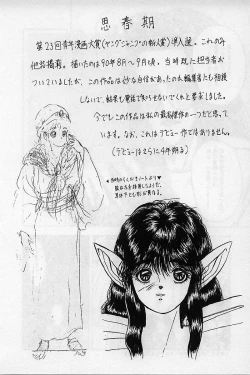 思春期
第23回青年漫画大賞(ヤングジャンプの新人賞)準入選。これのみ
他誌掲載。描いたのは90年8月〜9月頃。当時既に担当者が
ついていましたが、この作品は妙な自信があったため編集者にも相談
しないで、結果も電話で知らせないでくれと要求しました。
今でもこの作品は私の最高傑作の一つだと思って
います。なお、これはデビュー作ではありません。
(デビューはさらに4年前る)